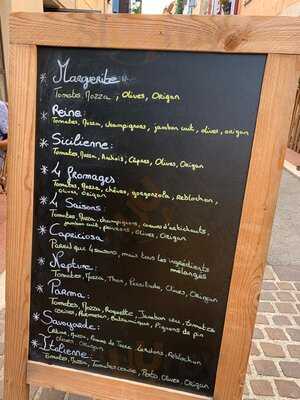 * Margerite
Tomates, Mozza, Olives, Origan
* Reine:
Tomates, Mozza, champignons, jambon cuit, olives, origan
* Sicilienne:
Tomates, Mozza, Anchois, Câpres, Olives, Origan
* 4 fromages
Tomates, Mozza, chèvre, gorgonzola, Reblochon,
olives, origan
* 4 Saisons
Tomates, Mozza, champignons, coeurs d'artichauts,
jambon cuit, poivrons, olives, Origan
* Capricciosa
Pareil que 4 saisons, mais tous les ingrédients
mélangés
* Neptune:
Tomates, Mozza, Thon, Persillade, Olives, Origan
* Parma:
Tomates, Mozza, Roquette, Jambon cru, tomates
cerises, Parmesan, Balsamique, Pignons de pin
* Savoyarde:
Crème, Mozza, Pomme de Terre, Lardons, Reblochon
olives, Origan
* Italienne:
Tomates, Mozza, Tomates cerise, Pesto, Olives, Origan